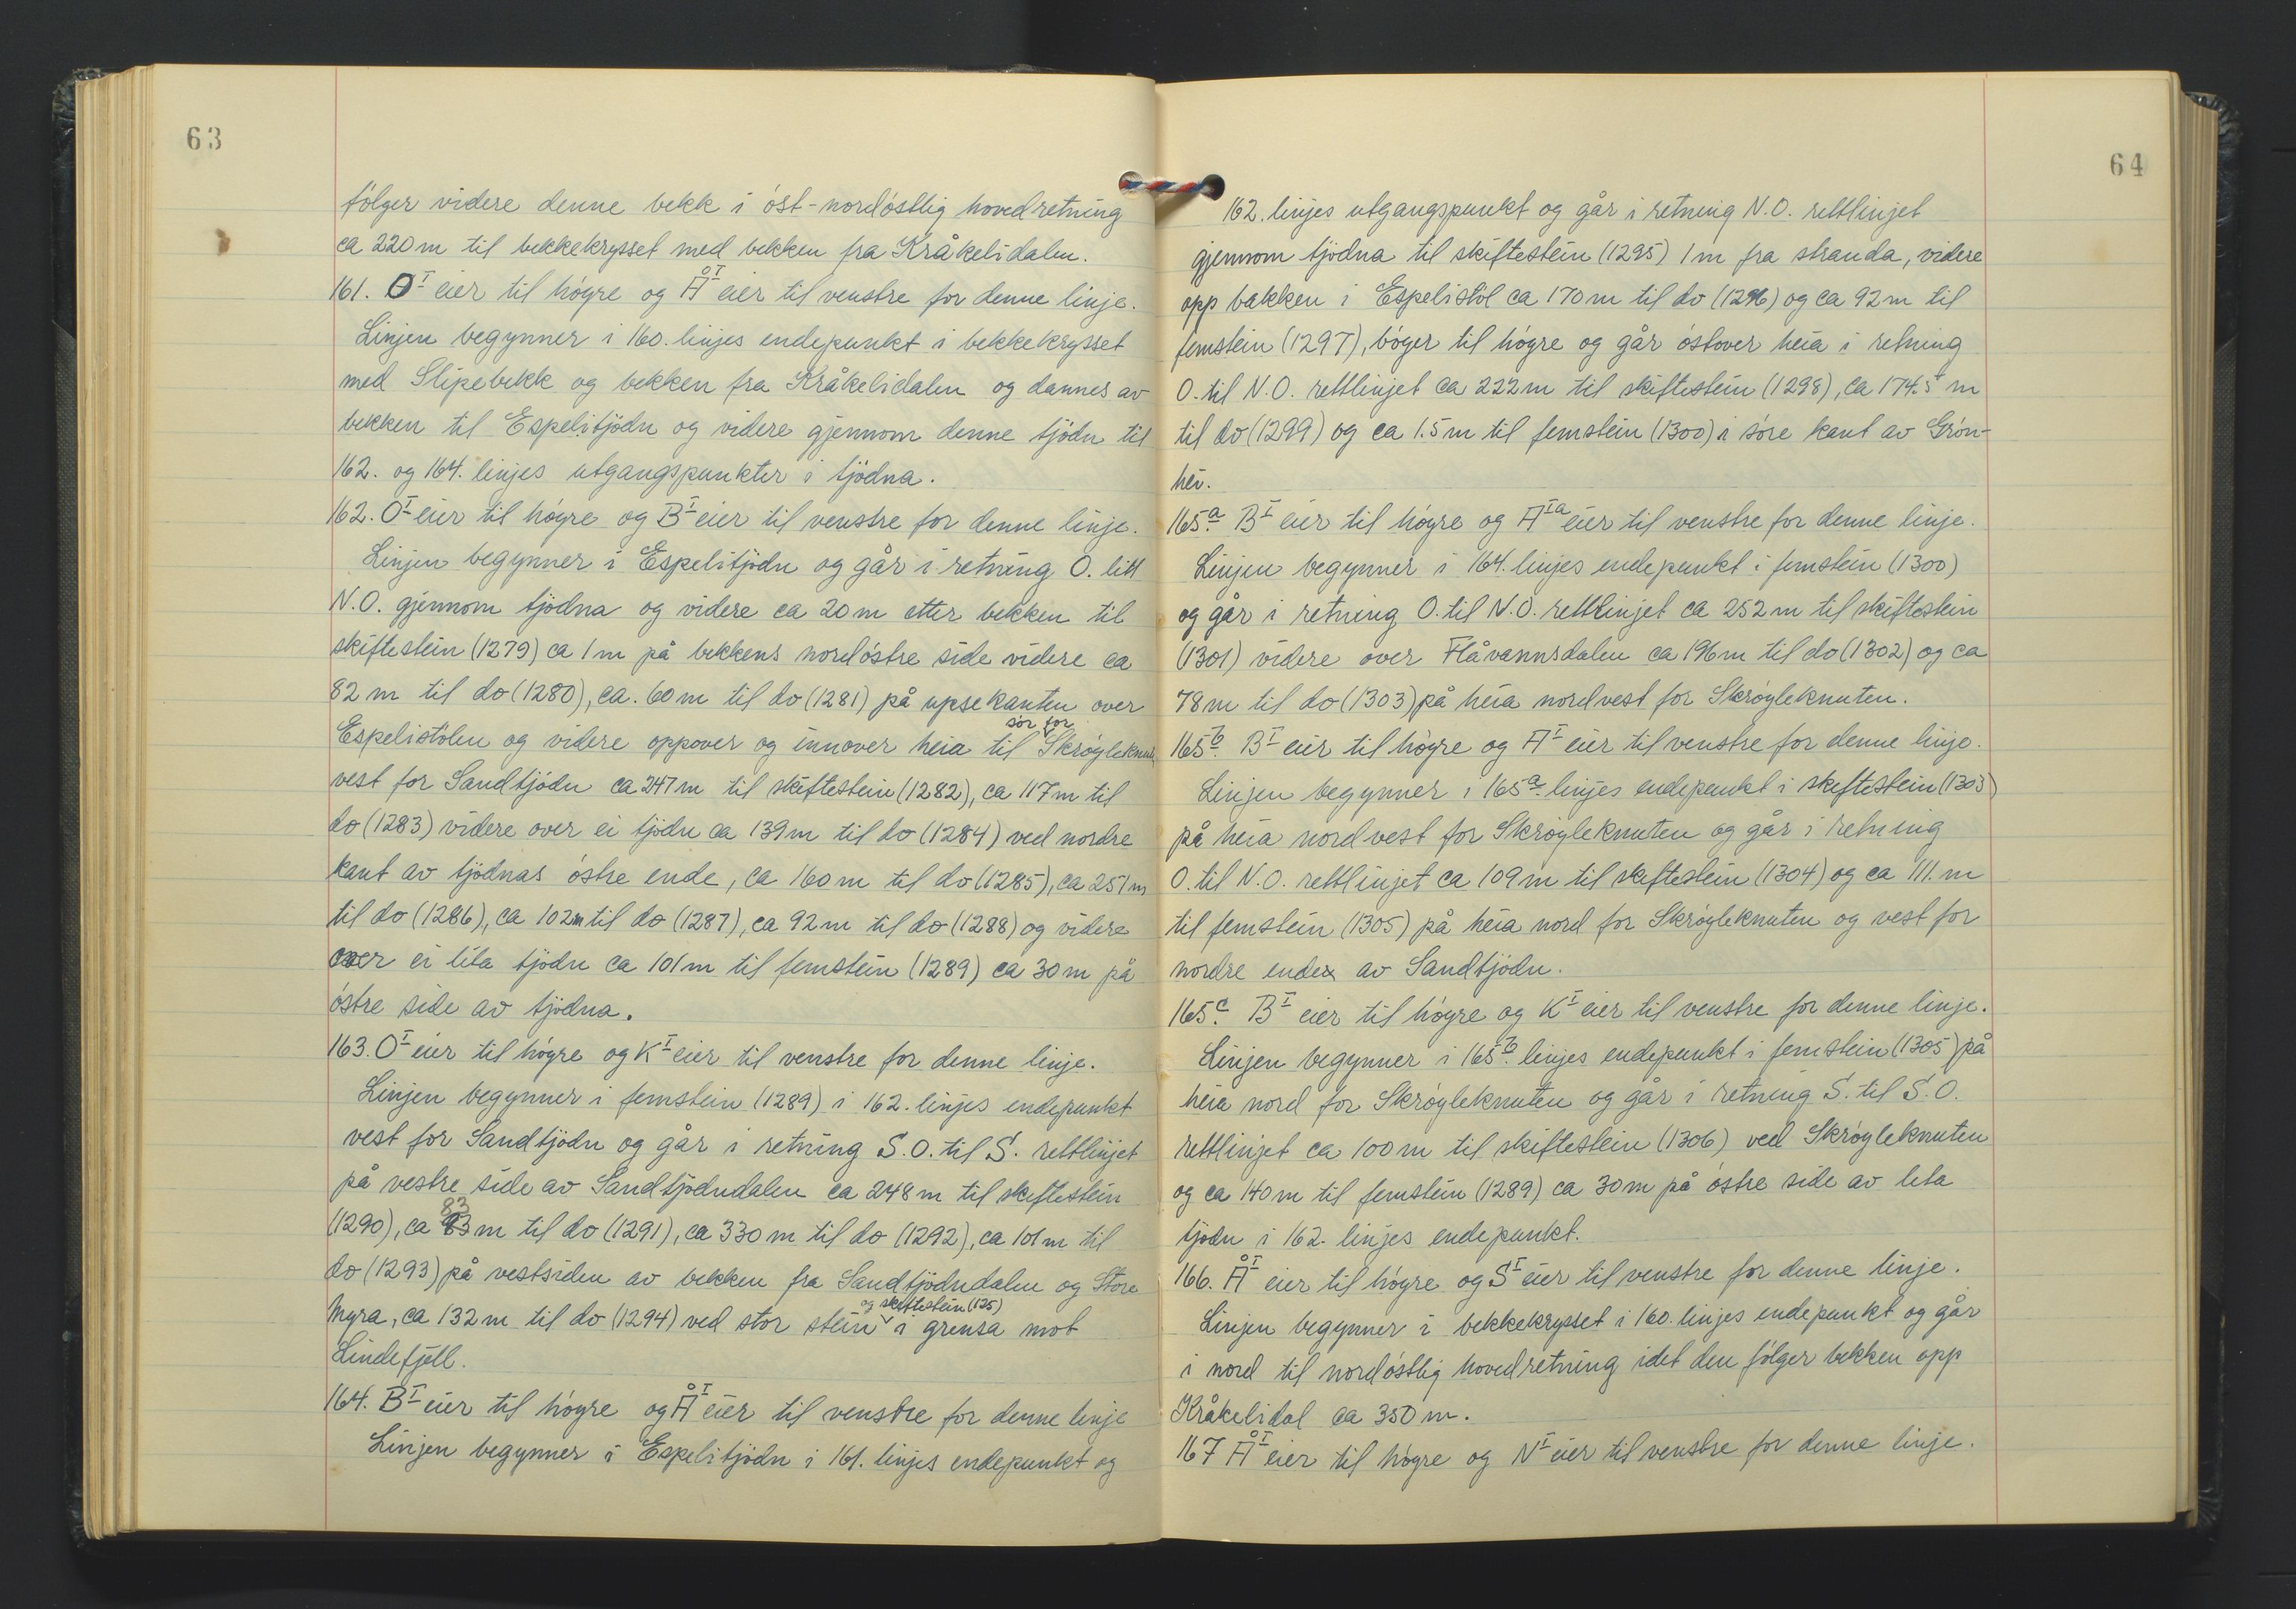 63
følger videre denne bekk i øst-nordøstlig hovedretning
ca 220 m til bekkekrysset med bekken fra Kråkelidalen.
161. O I eier til høgre og Å I eier til venstre for denne linje.
Linjen begynner i 160. linjes endepunkt i bekkekrysset
med Slipebekk og bekken fra Kråkelidalen og dannes av
bekken til Espelitjødn og videre gjennom denne tjødn til
162. og 164. linjes utgangspunkter i tjødna.
162. O I eier til høgre og B I eier til venstre for denne linje.
Linjen begynner i Espelitjødn og går i retning O. litt
N.O. gjennom tjødna og videre ca 20 m etter bekken til
skiftestein (1279) ca 1 m på bekkens nordøstre side videre ca
82 m til do (1280), ca. 60 m til do (1281) på upsekanten over
Espelistølen og videre oppover og innover heia til sør for Skrøyleknuten
vest for Sandtjødn ca 247 m til skiftestein (1282), ca 117 m til
do (1283) videre over ei tjødn ca 139 m til do (1284) ved nordre
kant av tjødnas østre ende, ca 160 m til do (1285), ca 251 m
til do (1286), ca 102 m til do (1287), ca 92 m til do (1288) og videre
over ei lita tjødn ca 101 m til femstein (1289) ca 30 m på
østre side av tjødna.
163. O I eier til høgre og K I eier til venstre for denne linje.
Linjen begynner i femstein (1289) i 162. linjes endepunkt
vest for Sandtjødn og går i retning S.O. til S. rettlinjet
på vestre side av Sandtjødndalen ca 248 m til skiftestein
(1290), ca 83 m til do (1291), ca 330 m til do (1292), ca 101 m til
do (1293) på vestsiden av bekken fra Sandtjødndalen og Store
Myra, ca 132 m til do (1294) ved stor stein og skiftestein (125) i grensa mot
Lindefjell.
164. B I eier til høgre og Å I eier til venstre for denne linje
Linjen begynner i Espelitjødn i 161. linjes endepunkt og
64
162. linjes utgangspunkt og går i retning N.O. rettlinjet
gjennom tjødna til skiftestein (1295) 1 m fra stranda, videre
opp bakken i Espelistøl ca 170 m til do (1296) og ca 92 m til
femstein (1297), bøger til høgre og går østover heia i retning
O. til N.O. rettlinjet ca 222 m til skiftestein (1298), ca 174.5 m
til do (1299) og ca 1.5 m til femstein (1300) i søre kant av Grøn-
hei.
165 a. B I eier til høgre og A Ia eier til venstre for denne linje.
Linjen begynner i 164. linjes endepunkt i femstein (1300)
og går i retning O. til N.O. rettlinjet ca 252 m til skiftestein
(1301) videre over Flåvannsdalen ca 196 m til do (1302) og ca
78 m til do (1303) på heia nordvest for Skrøyleknuten.
165 b. B I eier til høgre og A I eier til venstre for denne linje.
Linjen begynner i 165 a. linjes endepunkt i skiftestein (1303)
på heia nordvest for Skrøyleknuten og går i retning
O. til N.O. rettlinjet ca 109 m til skiftestein (1304) og ca 111. m
til femstein (1305) på heia nord for Skrøyleknuten og vest for
nordre ende av Sandtjødn.
165 c. B I eier til høgre og K I eier til venstre for denne linje.
Linjen begynner i 165 b. linjes endepunkt i femstein (1305) på
heia nord for Skrøyleknuten og går i retning S. til S.O.
rettlinjet ca 100 m til skiftestein (1306) ved Skrøyleknuten
og ca 140 m til femstein (1289) ca 30 m på østre side av lita
tjødn i 162. linjes endepunkt.
166. Å I eier til høgre og S I eier til venstre for denne linje.
Linjen begynner i bekkekrysset i 160. linjes endepunkt og går
i nord til nordøstlig hovedretning idet den følger bekken opp
Kråkelidal ca 350 m.
167 Å I eier til høgre og N I eier til venstre for denne linje.